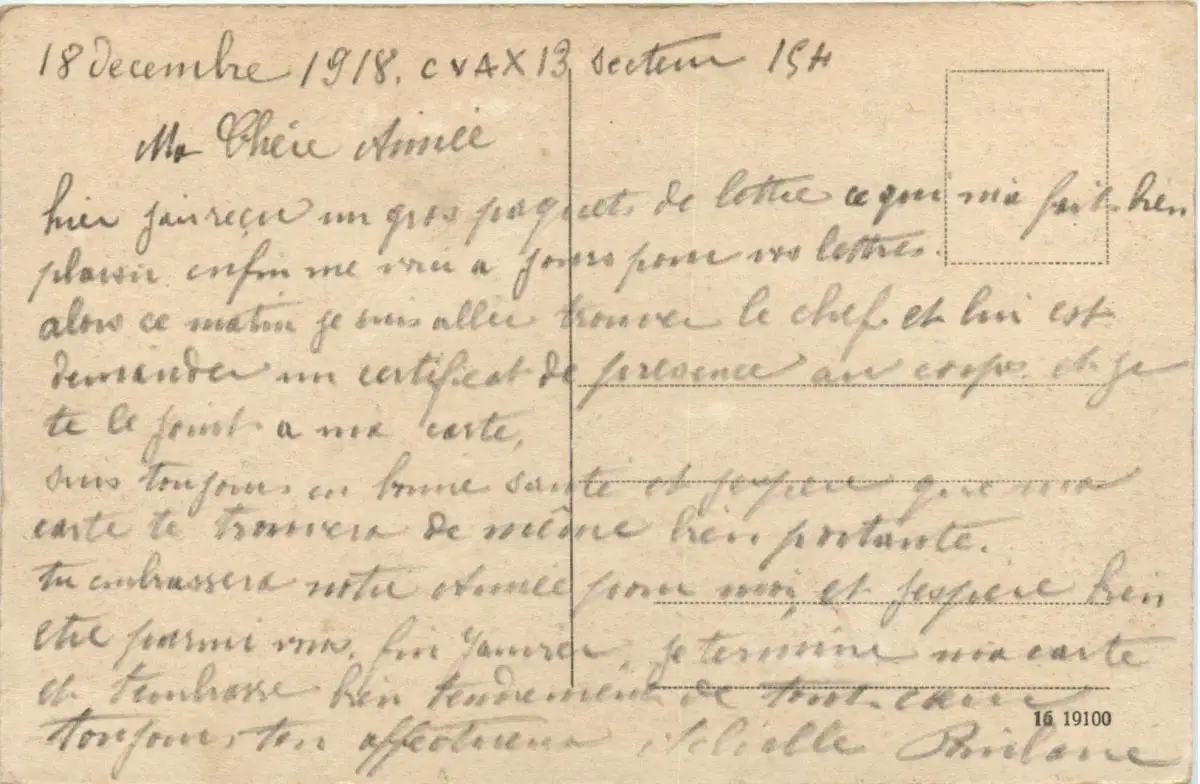 18 decembre 1918. CVAX 13 secteur 154
Ma Chére Aimée
hier jai reçu un gros paquets de lettre ce qui ma fait bien
plaisir enfin me voici a jours pour vos lettres.
alors ce matin je suis aller trouver le chef et lui est
demander un certificat de presence au corps et je
te le joint a ma carte,
suis toujours en bonne santé et jespere que ma
carte te trouvera de même bien portante.
tu embrassera notre Aimée pour moi, et jespere bien
etre parmi vous. fin Janvier, je termine ma carte
et tembrasse bien tendrement de tout cœur
toujours ton affectueux
16 19100